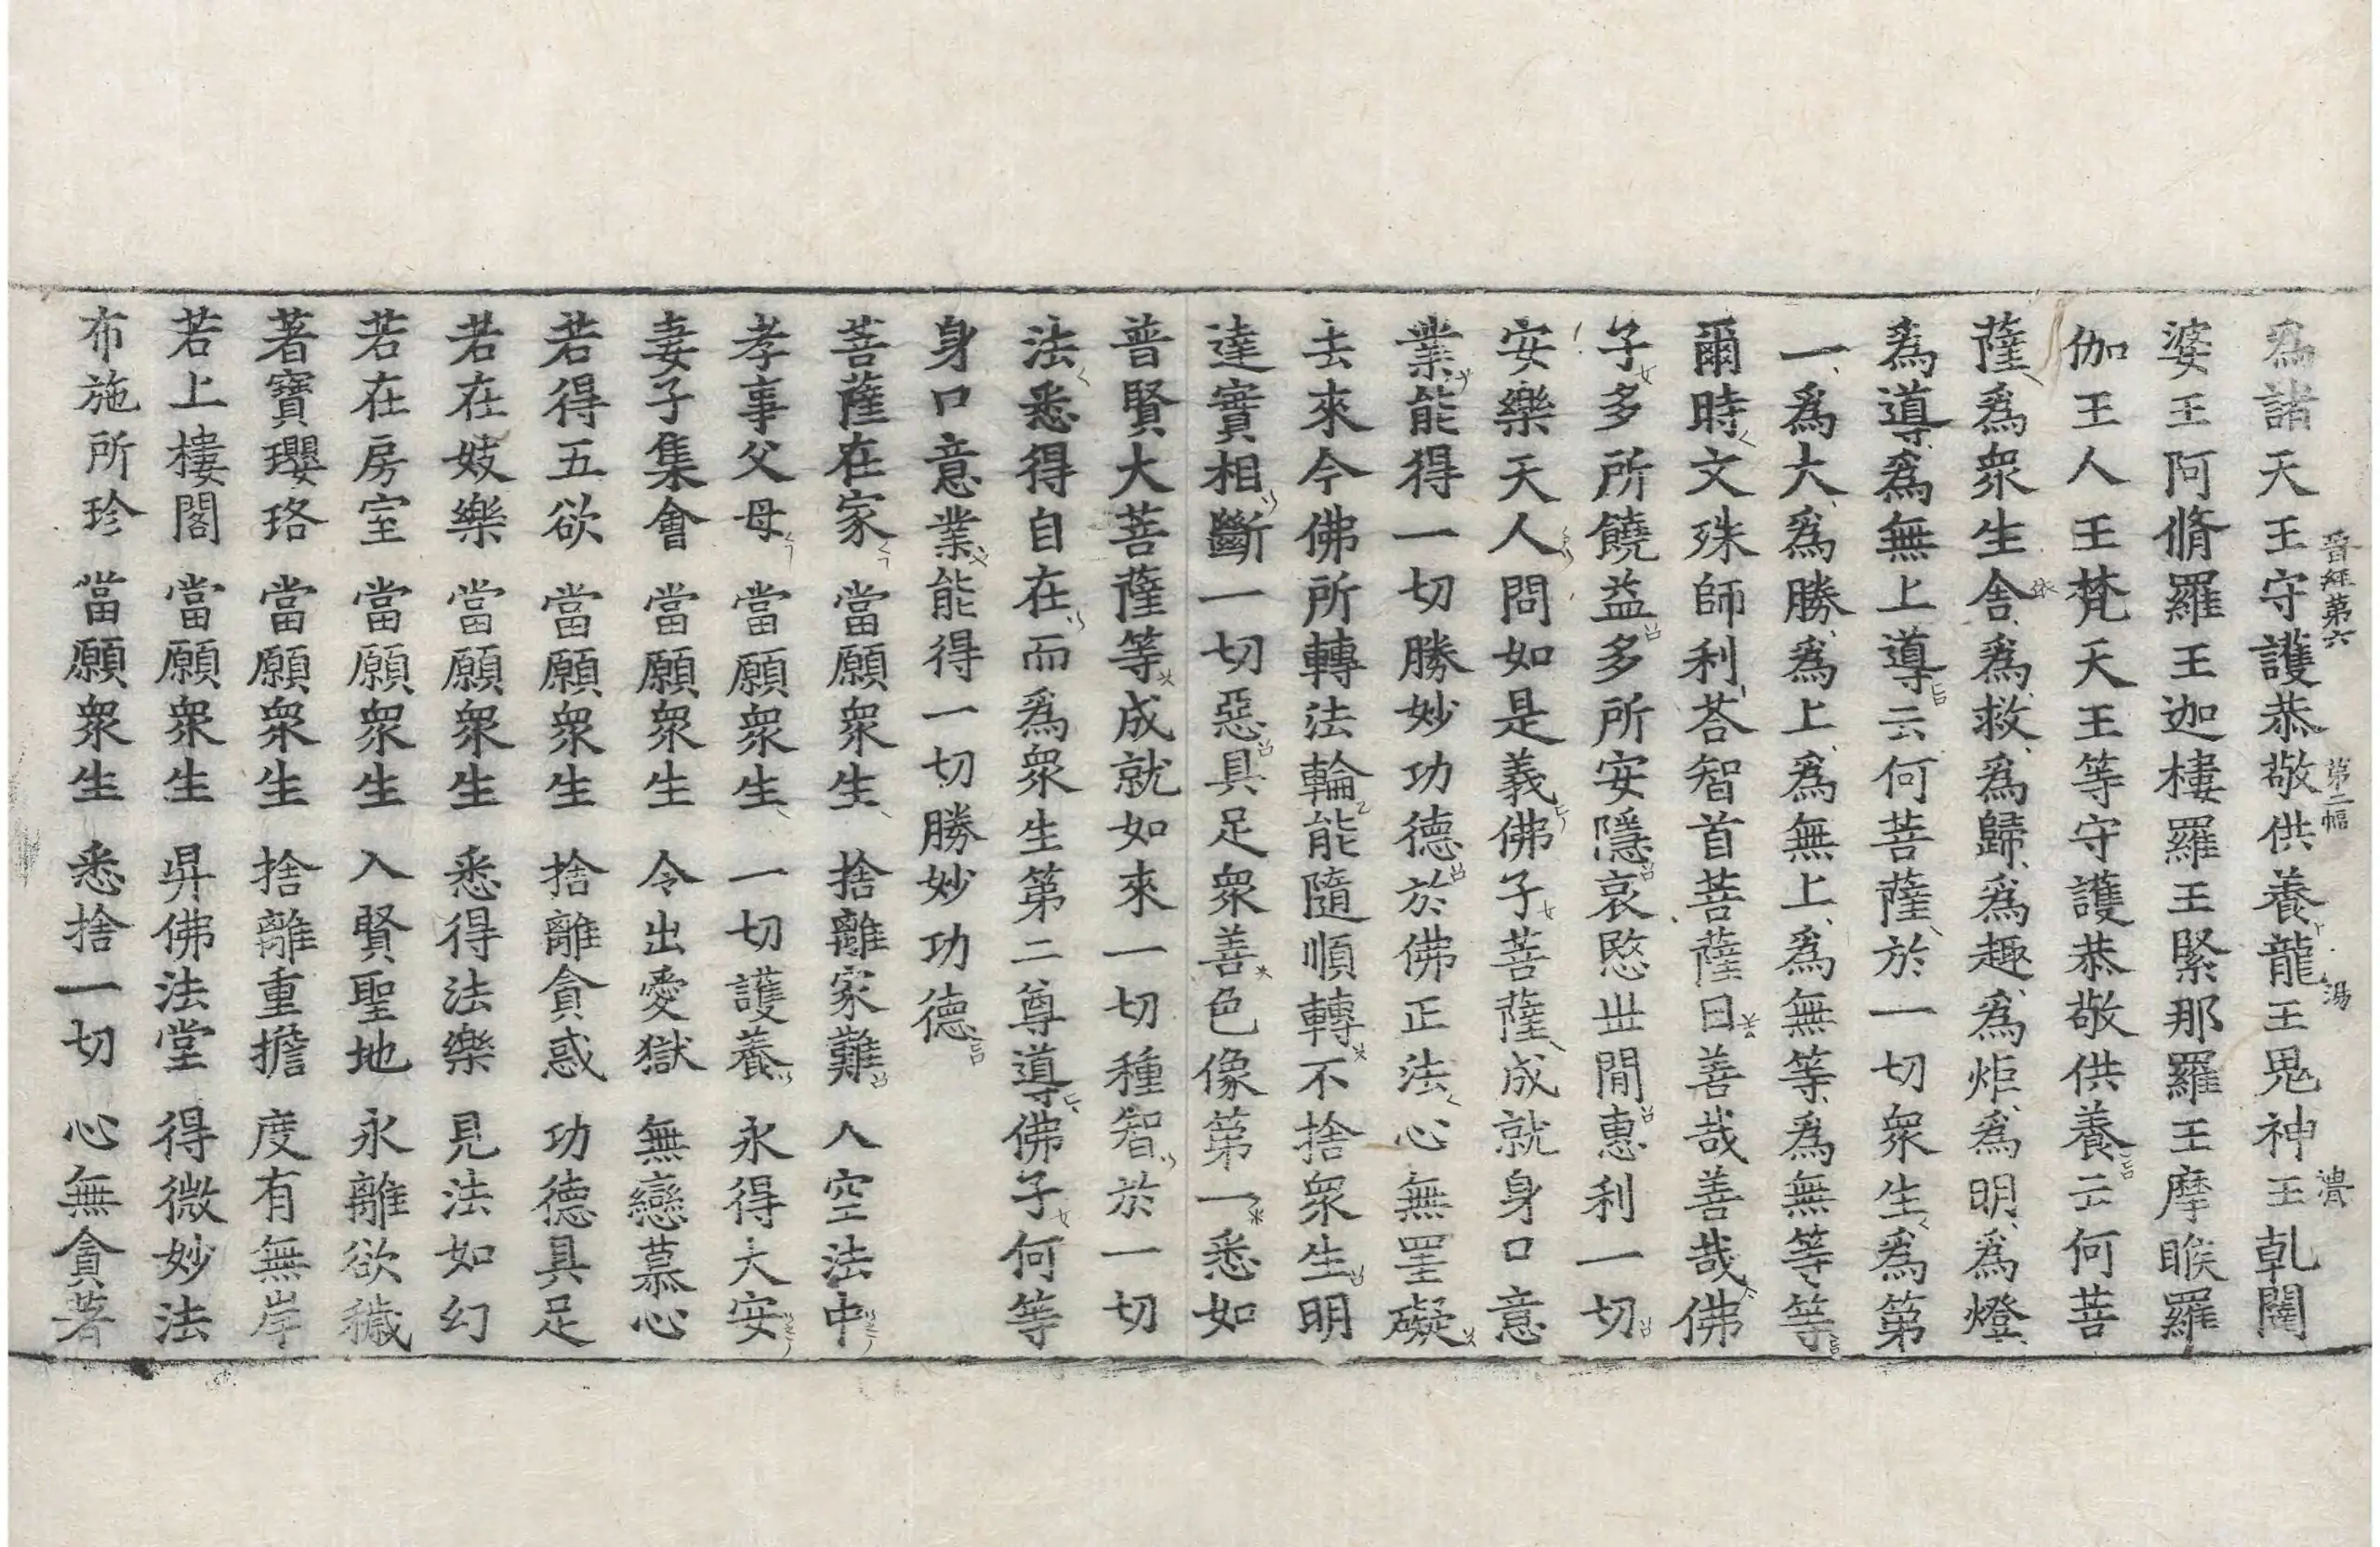 晉經第六 第二幅 湯
爲諸天王守護恭敬供養龍王鬼神王乹闥
婆王阿脩羅王迦樓羅王緊那羅王摩睺羅
伽王人王梵天王等守護恭敬供養云何菩
薩爲衆生舍爲救爲歸爲趣爲炬爲明爲燈
爲導爲無上導云何菩薩於一切衆生爲第
一爲大爲勝爲上爲無上爲無等爲無等等
爾時文殊師利荅智首菩薩曰善哉善哉佛
子多所饒益多所安隱哀愍丗閒惠利一切
安樂天人問如是義佛子菩薩成就身口意
業能得一切勝妙功德於佛正法心無罣礙
去來今佛所轉法輪能隨順轉不捨衆生明
達實相斷一切惡具足衆善色像第一悉如
普賢大菩薩等成就如來一切種智於一切
法悉得自在而爲衆生第二尊導佛子何等
身口意業能得一切勝妙功德
菩薩在家 當願衆生 捨離家難 入空法中
孝事父母 當願衆生 一切護養 永得大安
妻子集會 當願衆生 令出愛獄 無戀慕心
若得五欲 當願衆生 捨離貪惑 功德具足
若在妓樂 當願衆生 悉得法樂 見法如幻
若在房室 當願衆生 入賢聖地 永離欲穢
著寶瓔珞 當願衆生 捨離重擔 度有無岸
若上樓閣 當願衆生 昇佛法堂 得微妙法
布施所珍 當願衆生 悉捨一切 心無貪著